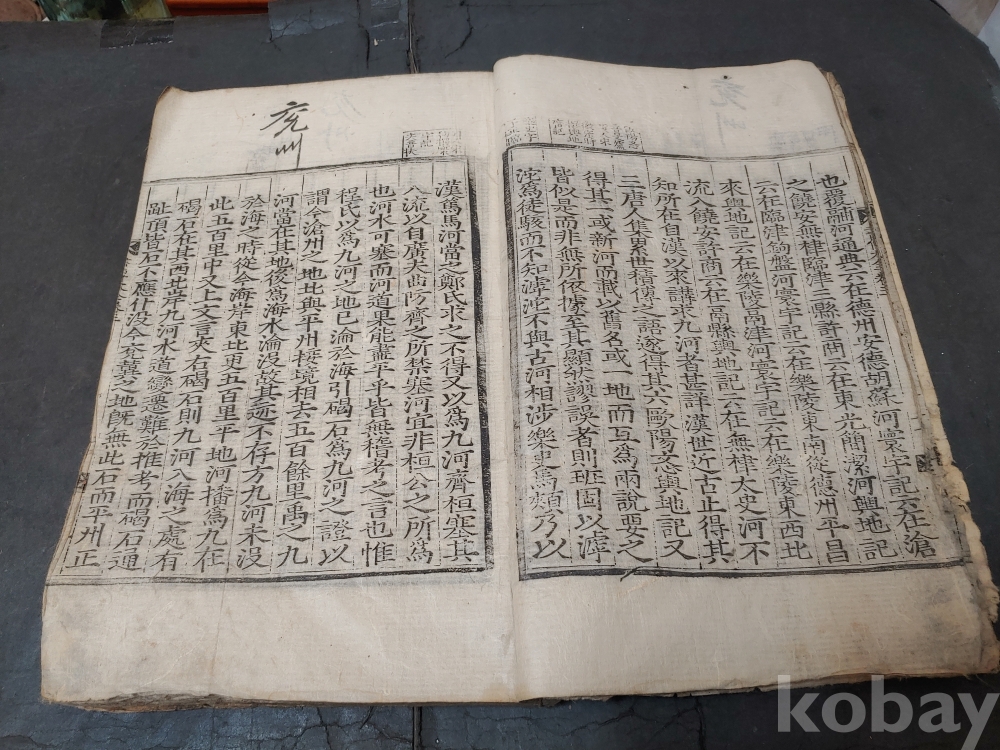 也覆鬴河通典云在德州安德胡蘇河寰宇記云在滄
之饒安無棣臨津三縣許商云在東光簡潔河輿地記
云在臨津鉤盤河寰宇記云在樂陵東南從德州平昌
來輿地記云在樂陵鬲津河寰宇記云在樂陵東西北
流入饒安許商云在鬲縣輿地記云在無棣太史河不
知所在自漢以來講求九河者甚詳漢世近古止得其
三唐人集累世積傳之語遂得其六歐陽忞輿地記又
得其一或新河而載以舊名或一地而互爲兩說要之
皆似是而非無所依據至其顯然謬誤者則班固以滹
沱爲徒駭而不知滹沱不與古河相涉樂史馬頰乃以
兗州
漢篤馬河當之鄭氏求之不得又以爲九河齊桓塞其
八流以自廣夫曲防齊之所禁塞河宜非桓公之所爲
也河水可塞而河道果能盡平乎皆無稽考之言也惟
程氏以爲九河之地已淪於海引碣石爲九河之證以
謂今滄州之地北與平州接境相去五百餘里禹之九
河當在其地後爲海水淪沒故其迹不存方九河未沒
於海之時從今海岸東北更五百里平地河播爲九在
此五百里中又上文言夾右碣石則九河入海之處有
碣石在其西北岸九河水道變遷難於推考而碣石通
趾頂皆石不應仆沒今兗冀之地旣無此石而平州正
kobay